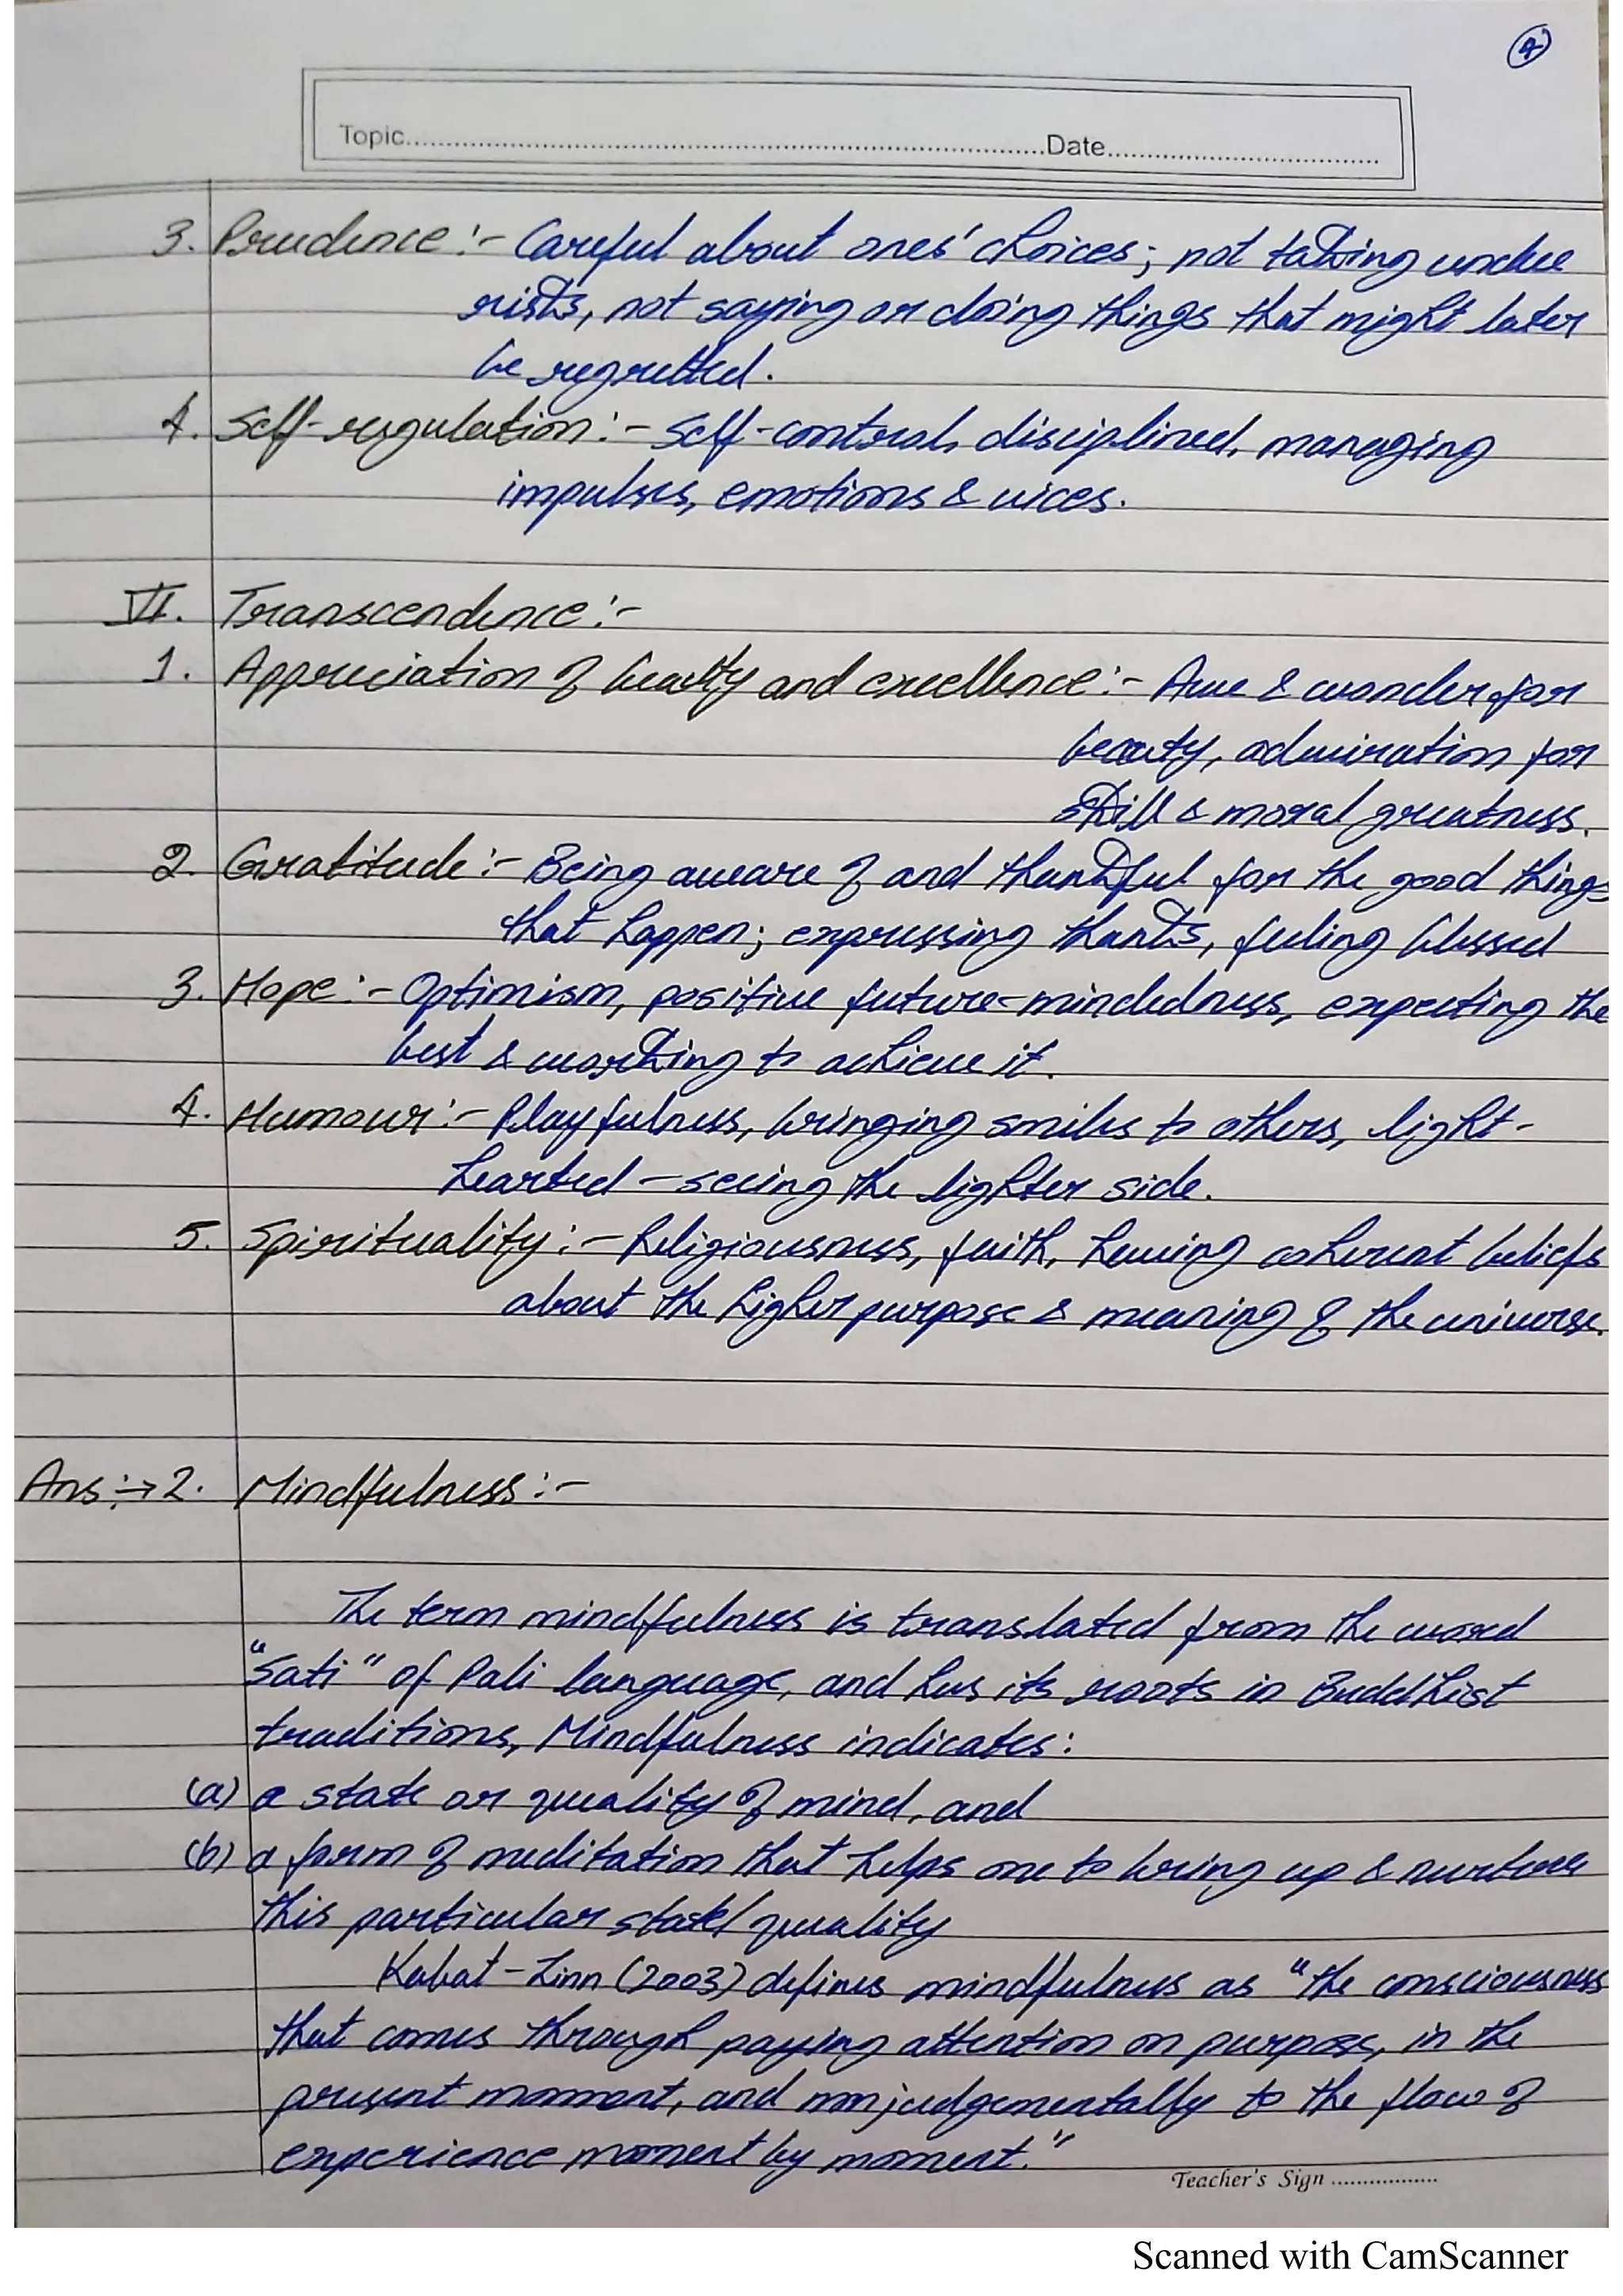 4
Topic..........Date..........
3. Prudence :- Careful about ones' choices; not taking undue
risks, not saying or doing things that might later
be regretted.
4. Self-regulation :- Self-control, disciplined, managing
impulses, emotions & vices.
VI. Transcendence :-
1. Appreciation of beauty and excellence :- Awe & wonder for
beauty, admiration for
skill & moral greatness.
2. Gratitude :- Being aware of and thankful for the good things
that happen; expressing thanks, feeling blessed
3. Hope :- Optimism, positive future-mindedness, expecting the
best & working to achieve it.
4. Humour :- Playfulness, bringing smiles to others, light-
hearted – seeing the lighter side.
5. Spirituality :- Religiousness, faith, having coherent beliefs
about the higher purpose & meaning of the universe.
Ans :→ 2. Mindfulness :-
The term mindfulness is translated from the word
"Sati" of Pali language, and has its roots in Buddhist
traditions, Mindfulness indicates:
(a) a state or quality of mind, and
(b) a form of meditation that helps one to bring up & nurture
this particular state/quality
Kabat-Zinn (2003) defines mindfulness as "the consciousness
that comes through paying attention on purpose, in the
present moment, and nonjudgementally to the flow of
experience moment by moment."
Teacher's Sign ..................
Scanned with CamScanner